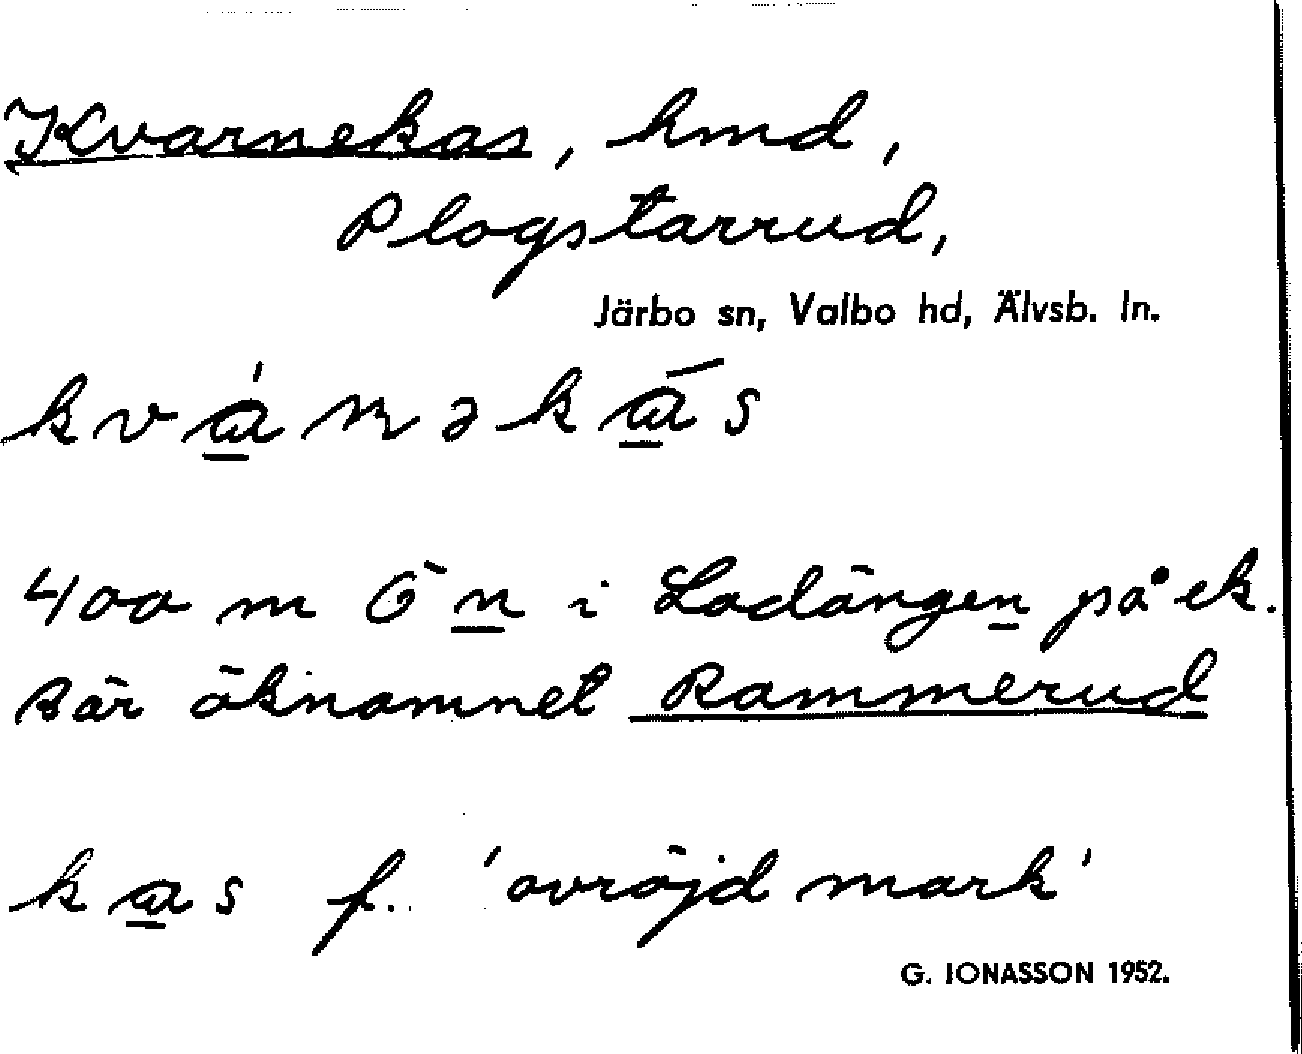 Kvarnekas, hmd,
Plogstarrud,
Järbo sn, Valbo hd, Älvsb. ln.
kvánəkás
400 m Ö n i Ladängen på ek.
Bär öknamnet Rammerud
kas f. 'avröjd mark'
G. IONASSON 1952.